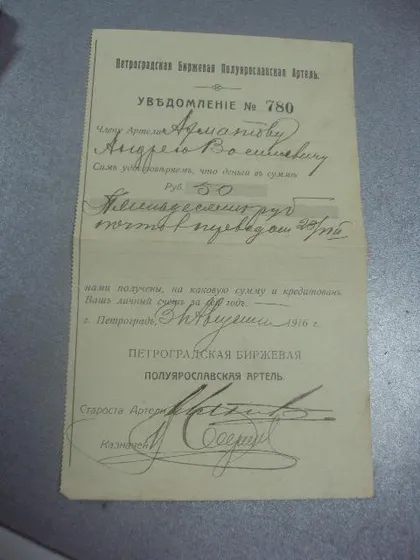 Петроградская Биржевая Полуярославская Артель.
УВѢДОМЛЕНІЕ № 780
Члену Артели Ахматову
Андрею Васильевичу
Симъ удостовѣряемъ, что деньги въ суммѣ
Руб. 50
Пятьдесятъ руб
почтов переводомъ 28/VIII
нами получены, на каковую сумму и кредитованъ
Вашъ личный счетъ за годъ.
г. Петроградъ, 31 Августа 1916 г.
ПЕТРОГРАДСКАЯ БИРЖЕВАЯ
ПОЛУЯРОСЛАВСКАЯ АРТЕЛЬ.
Староста Артели
Казначей